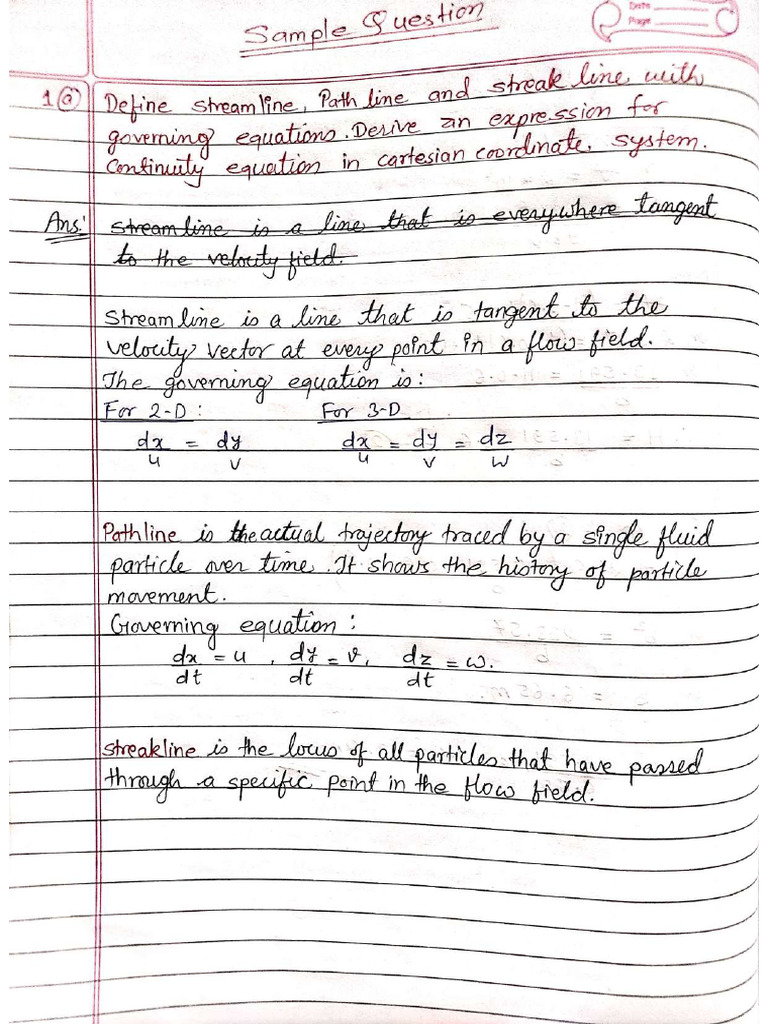 Date
Page
Sample Question
1 a Define streamline, Path line and streak line with
governing equations. Derive an expression for
Continuity equation in cartesian coordinate. system.
Ans: streamline is a line that is everywhere tangent
to the velocity field.
Streamline is a line that is tangent to the
velocity vector at every point in a flow field.
The governing equation is:
For 2-D : For 3-D
dx/u = dy/v dx/u = dy/v = dz/w
Pathline is the actual trajectory traced by a single fluid
particle over time. It shows the history of particle
movement.
Governing equation :
dx/dt = u , dy/dt = v, dz/dt = w.
streakline is the locus of all particles that have passed
through a specific point in the flow field.